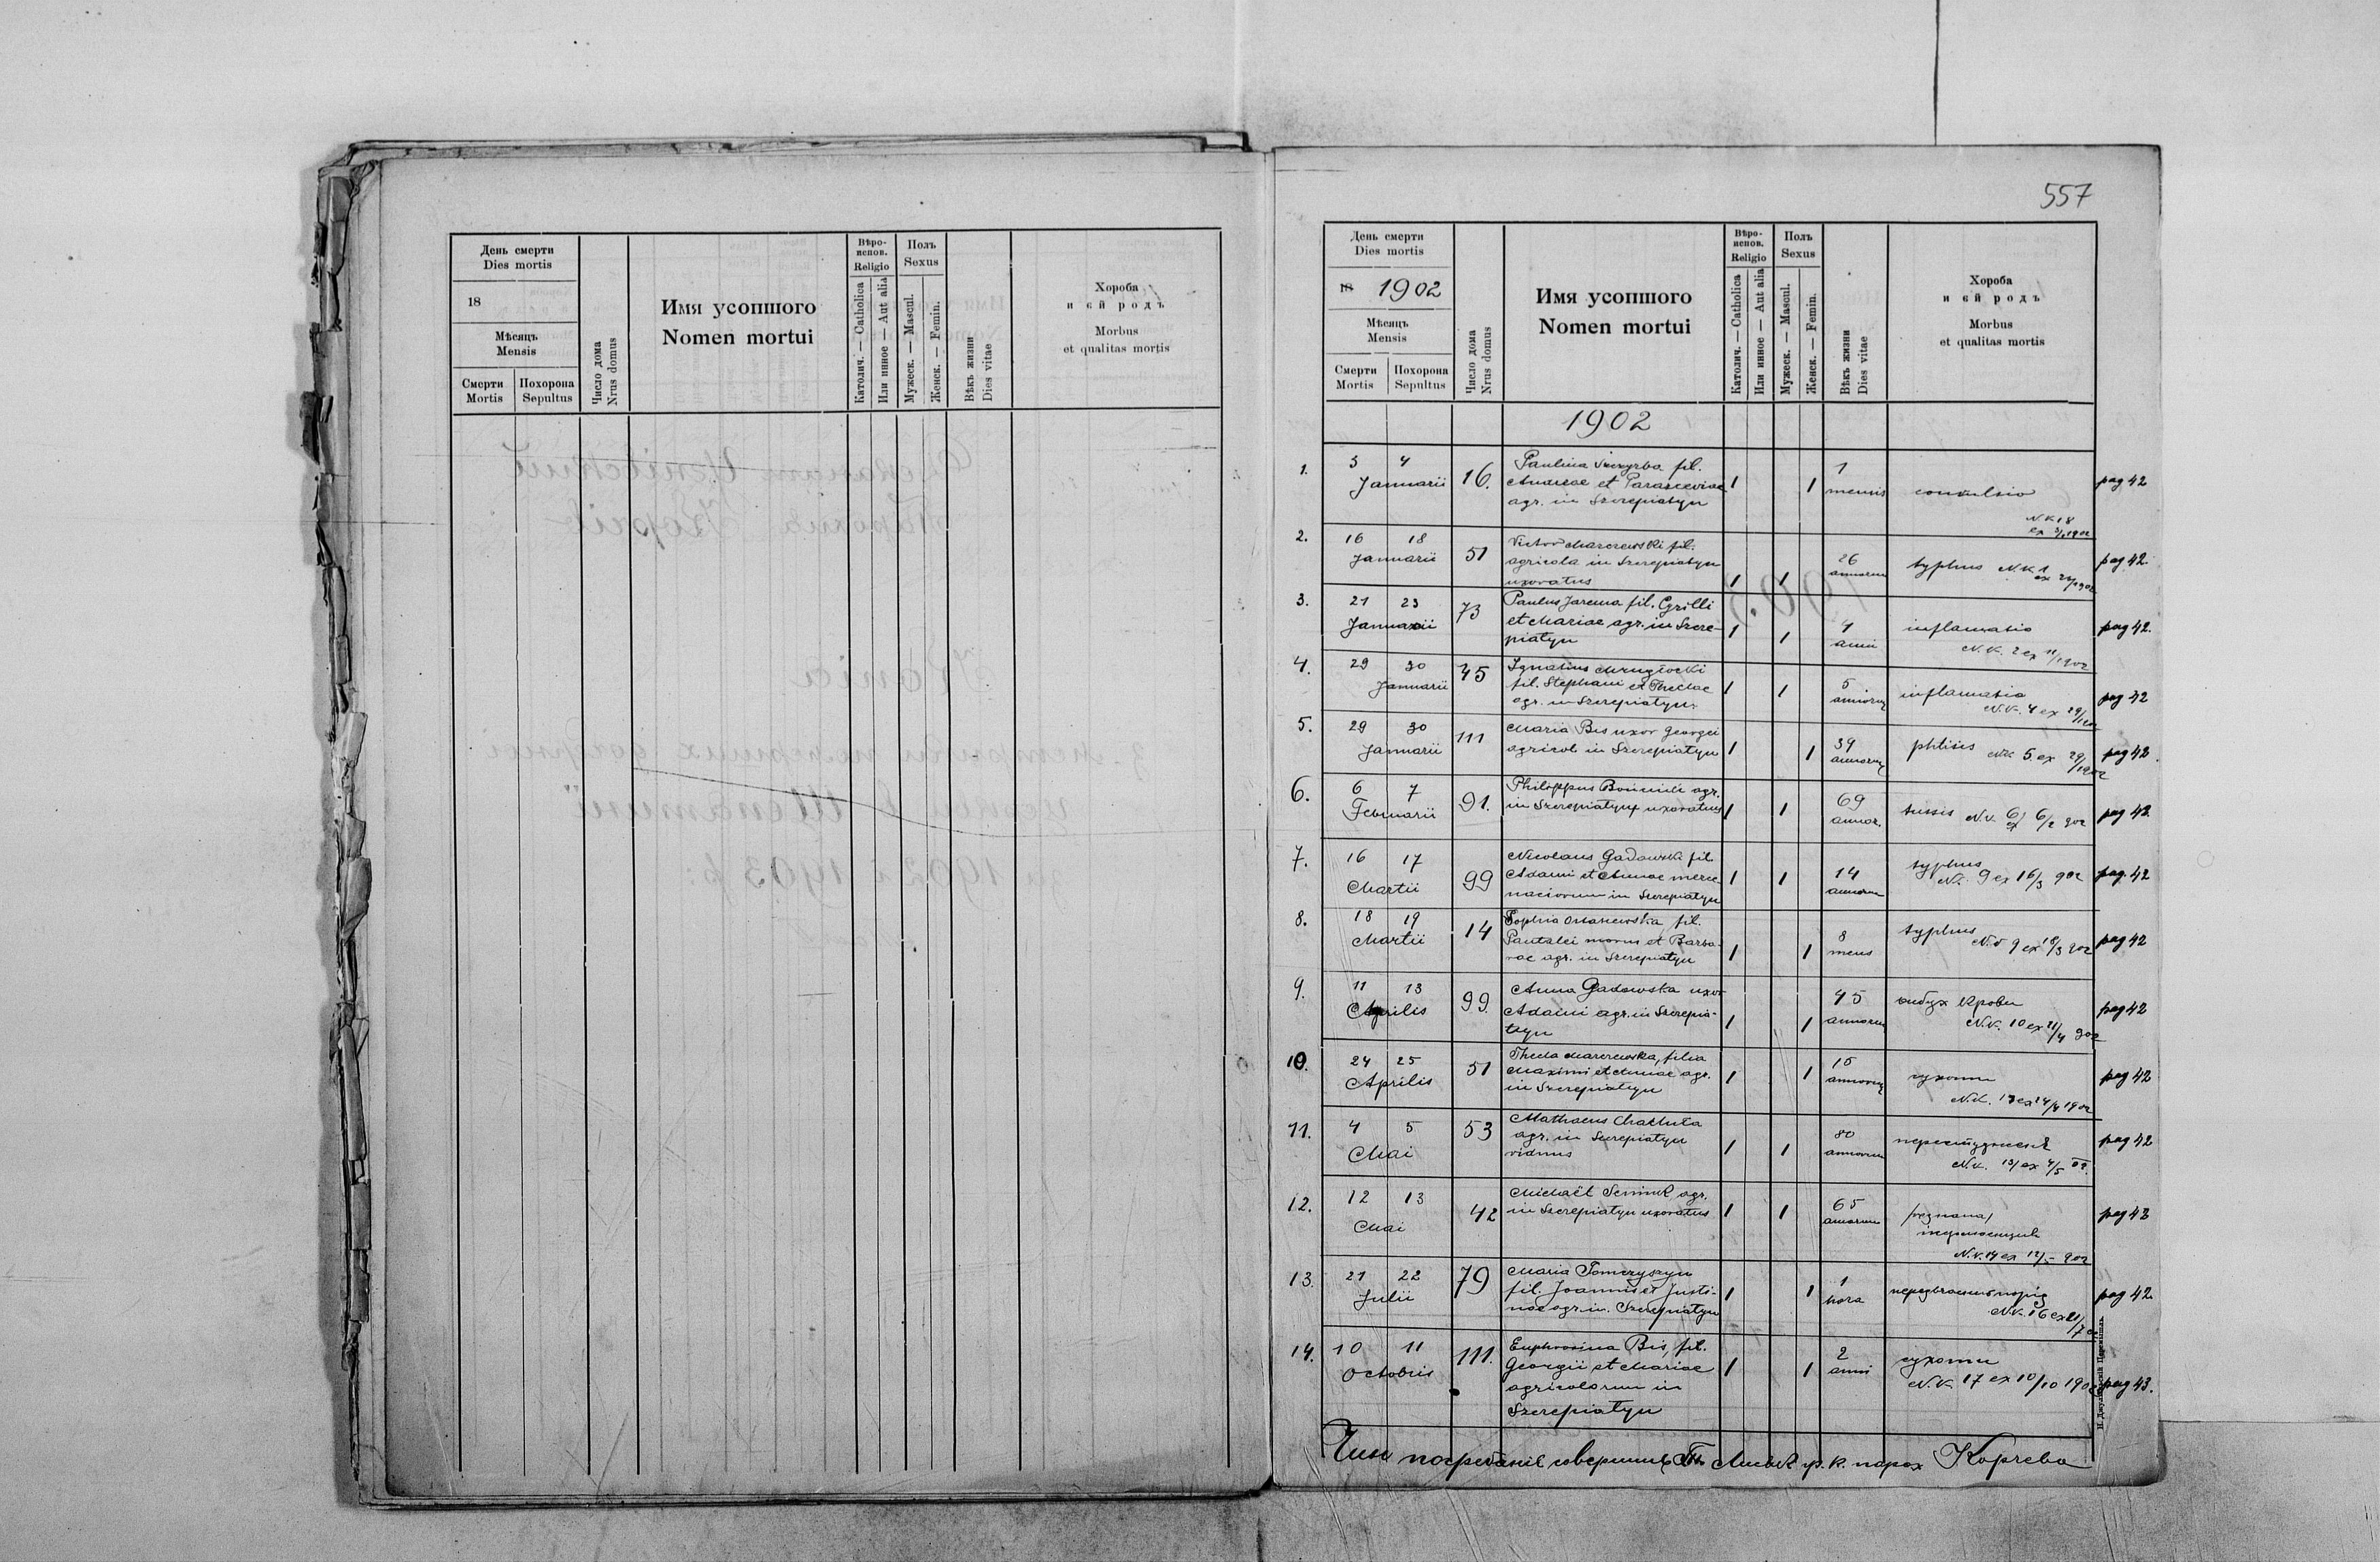 День смерти
Dies mortis
18
Мѣсяць
Mensis
Смерти
Mortis
Похорона
Sepultus
Число дома
Nrus domus
Имя усопшого
Nomen mortui
Вѣро-
испов.
Religio
Католич. — Catholica
Или инное — Aut alia
Полъ
Sexus
Мужеск. — Mascul.
Женск. — Femin.
Вѣкъ жизни
Dies vitae
Хороба
и єй родъ
Morbus
et qualitas mortis
557
День смерти
Dies mortis
18 1902
Мѣсяць
Mensis
Смерти
Mortis
Похорона
Sepultus
Число дома
Nrus domus
Имя усопшого
Nomen mortui
Вѣро-
испов.
Religio
Католич. — Catholica
Или инное — Aut alia
Полъ
Sexus
Мужеск. — Mascul.
Женск. — Femin.
Вѣкъ жизни
Dies vitae
Хороба
и єй родъ
Morbus
et qualitas mortis
1902
1. 3 4 Januarii 16. Paulina fil.
Andreae et Parasceviae
agr. in Szczepiatyn
1 1 1 mensis convulsio pag 42
N.K 18
2. 16 18 Januarii 51 Victor Marczewski fil.
agricola in Szczepiatyn
uxoratus
1 1 26 annorum typhus N.K 1 pag 42.
3. 21 23 Januarii 73 Paulus Jarema fil. Cyrilli
et Mariae agr. in Szcze-
piatyn
1 1 4 anni inflamatio pag 42.
N.K. 2 ex
4. 29 30 Januarii 45 Ignatius
fil. Stephani et Theclae
agr. in Szczepiatyn
1 1 5 annorum inflamatio pag 42
N.K. 4 ex 29/1 902
5. 29 30 Januarii 111 Maria Bis uxor Georgei
agricol. in Szczepiatyn
1 1 39 annorum phtisis N.K. 5 ex 29/1 902 pag 42.
6. 6 7 Februarii 91. Philippus agr.
in Szczepiatyn uxoratus
1 1 69 annor. tussis N.K. 6 ex 6/2 902 pag 42.
7. 16 17 Martii 99 Nicolaus Gadowski fil.
Adami et Annae merce
nariorum in Szczepiatyn
1 1 14 annorum typhus
N. 9 ex 16/3 902 pag. 42
8. 18 19 Martii 14 Sophia fil.
Pantalei et Barba-
rae agr. in Szczepiatyn
1 1 8 mens typhus
N. 9 ex 18/3 902 pag 42
9. 11 13 Aprilis 99. Anna Gadowska uxor
Adami agr. in Szczepia-
tyn
1 1 45 annorum выбух крови
N.K. 10 ex 11/4 902 pag 42
10. 24 25 Aprilis 51 Thecla Marczewska, filia
Maximi et Annae agr.
in Szczepiatyn
1 1 15 annorum сухоти
N.K. 13 ex 24/4 1902 pag 42
11. 4 5 Mai 53 Mathaeus Chakhuta
agr. in Szczepiatyn
viduus
1 1 80 annorum
N.K. 13/ ex 4/5 02. pag 42
12. 12 13 Mai 42 Michaël Seniuk agr.
in Szczepiatyn uxoratus
1 1 65 annorum
N.K. 14 ex 12/5 902 pag 42
13. 21 22 Julii 79 Maria Tomczyszyn
fil. Joannis et Justi-
nae agr. in Szczepiatyn
1 1 1 hora порід
N.K. 16 ex 21/7 pag 42.
14. 10 11 Octobris 111. Euphrosina Bis, fil.
Georgii et Mariae
agricolarum in
Szczepiatyn
1 1 2 anni сухоти
N.K. 17 ex 10/10 1902 pag 43.
Чин погребанія совершивъ гр. к. парох Корчева